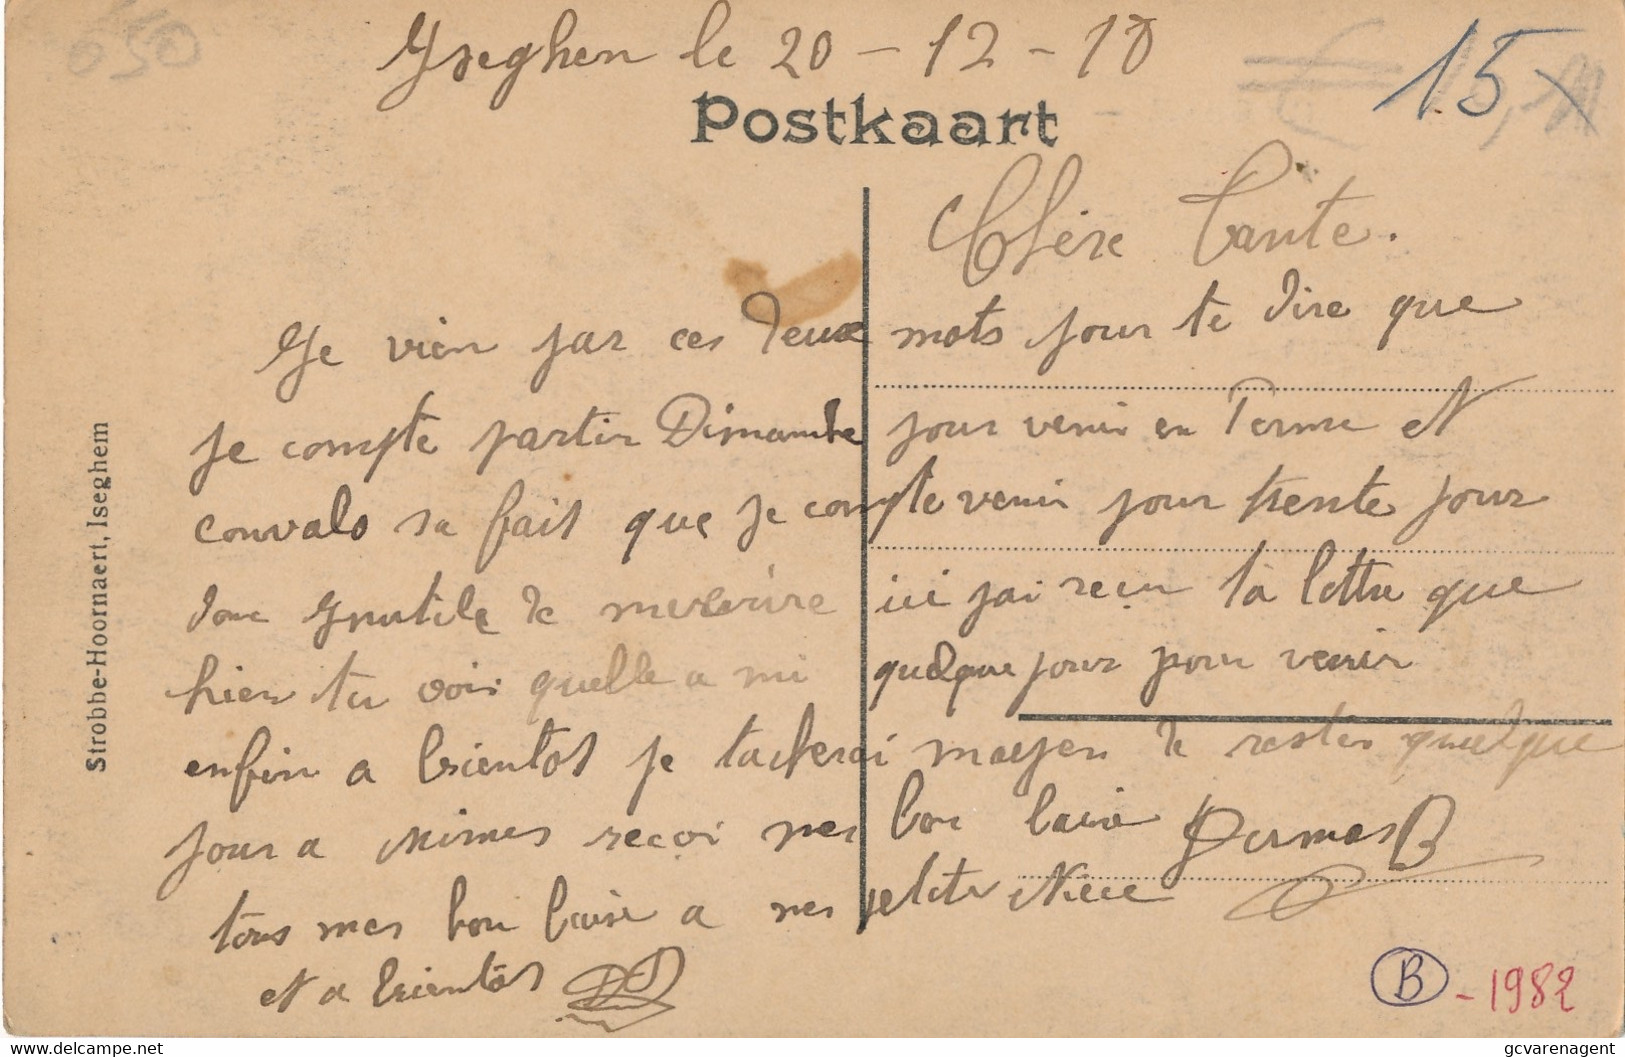 Yseghen le 20 - 12 - 18
15
Postkaart
Chère Tante.
Ye vien par ces deux mots pour te dire que
je compte partir Dimanche pour venir en Perme et
convalo sa fait que je compte venir pour trente jour
donc ynutile de mecrire ici jai reçu ta lettre que
hier tu vois quelle a mi quelque jour pour venir
enfin a bientot je tacherai moyen de rester quelque
jour a Nimes reçoi mes bon baisé
tous mes bon baisé a mes petite Niece
et a bientôt
Strobbe-Hoornaert, Iseghem
B - 1982
delcampe.net
gcvarenagent